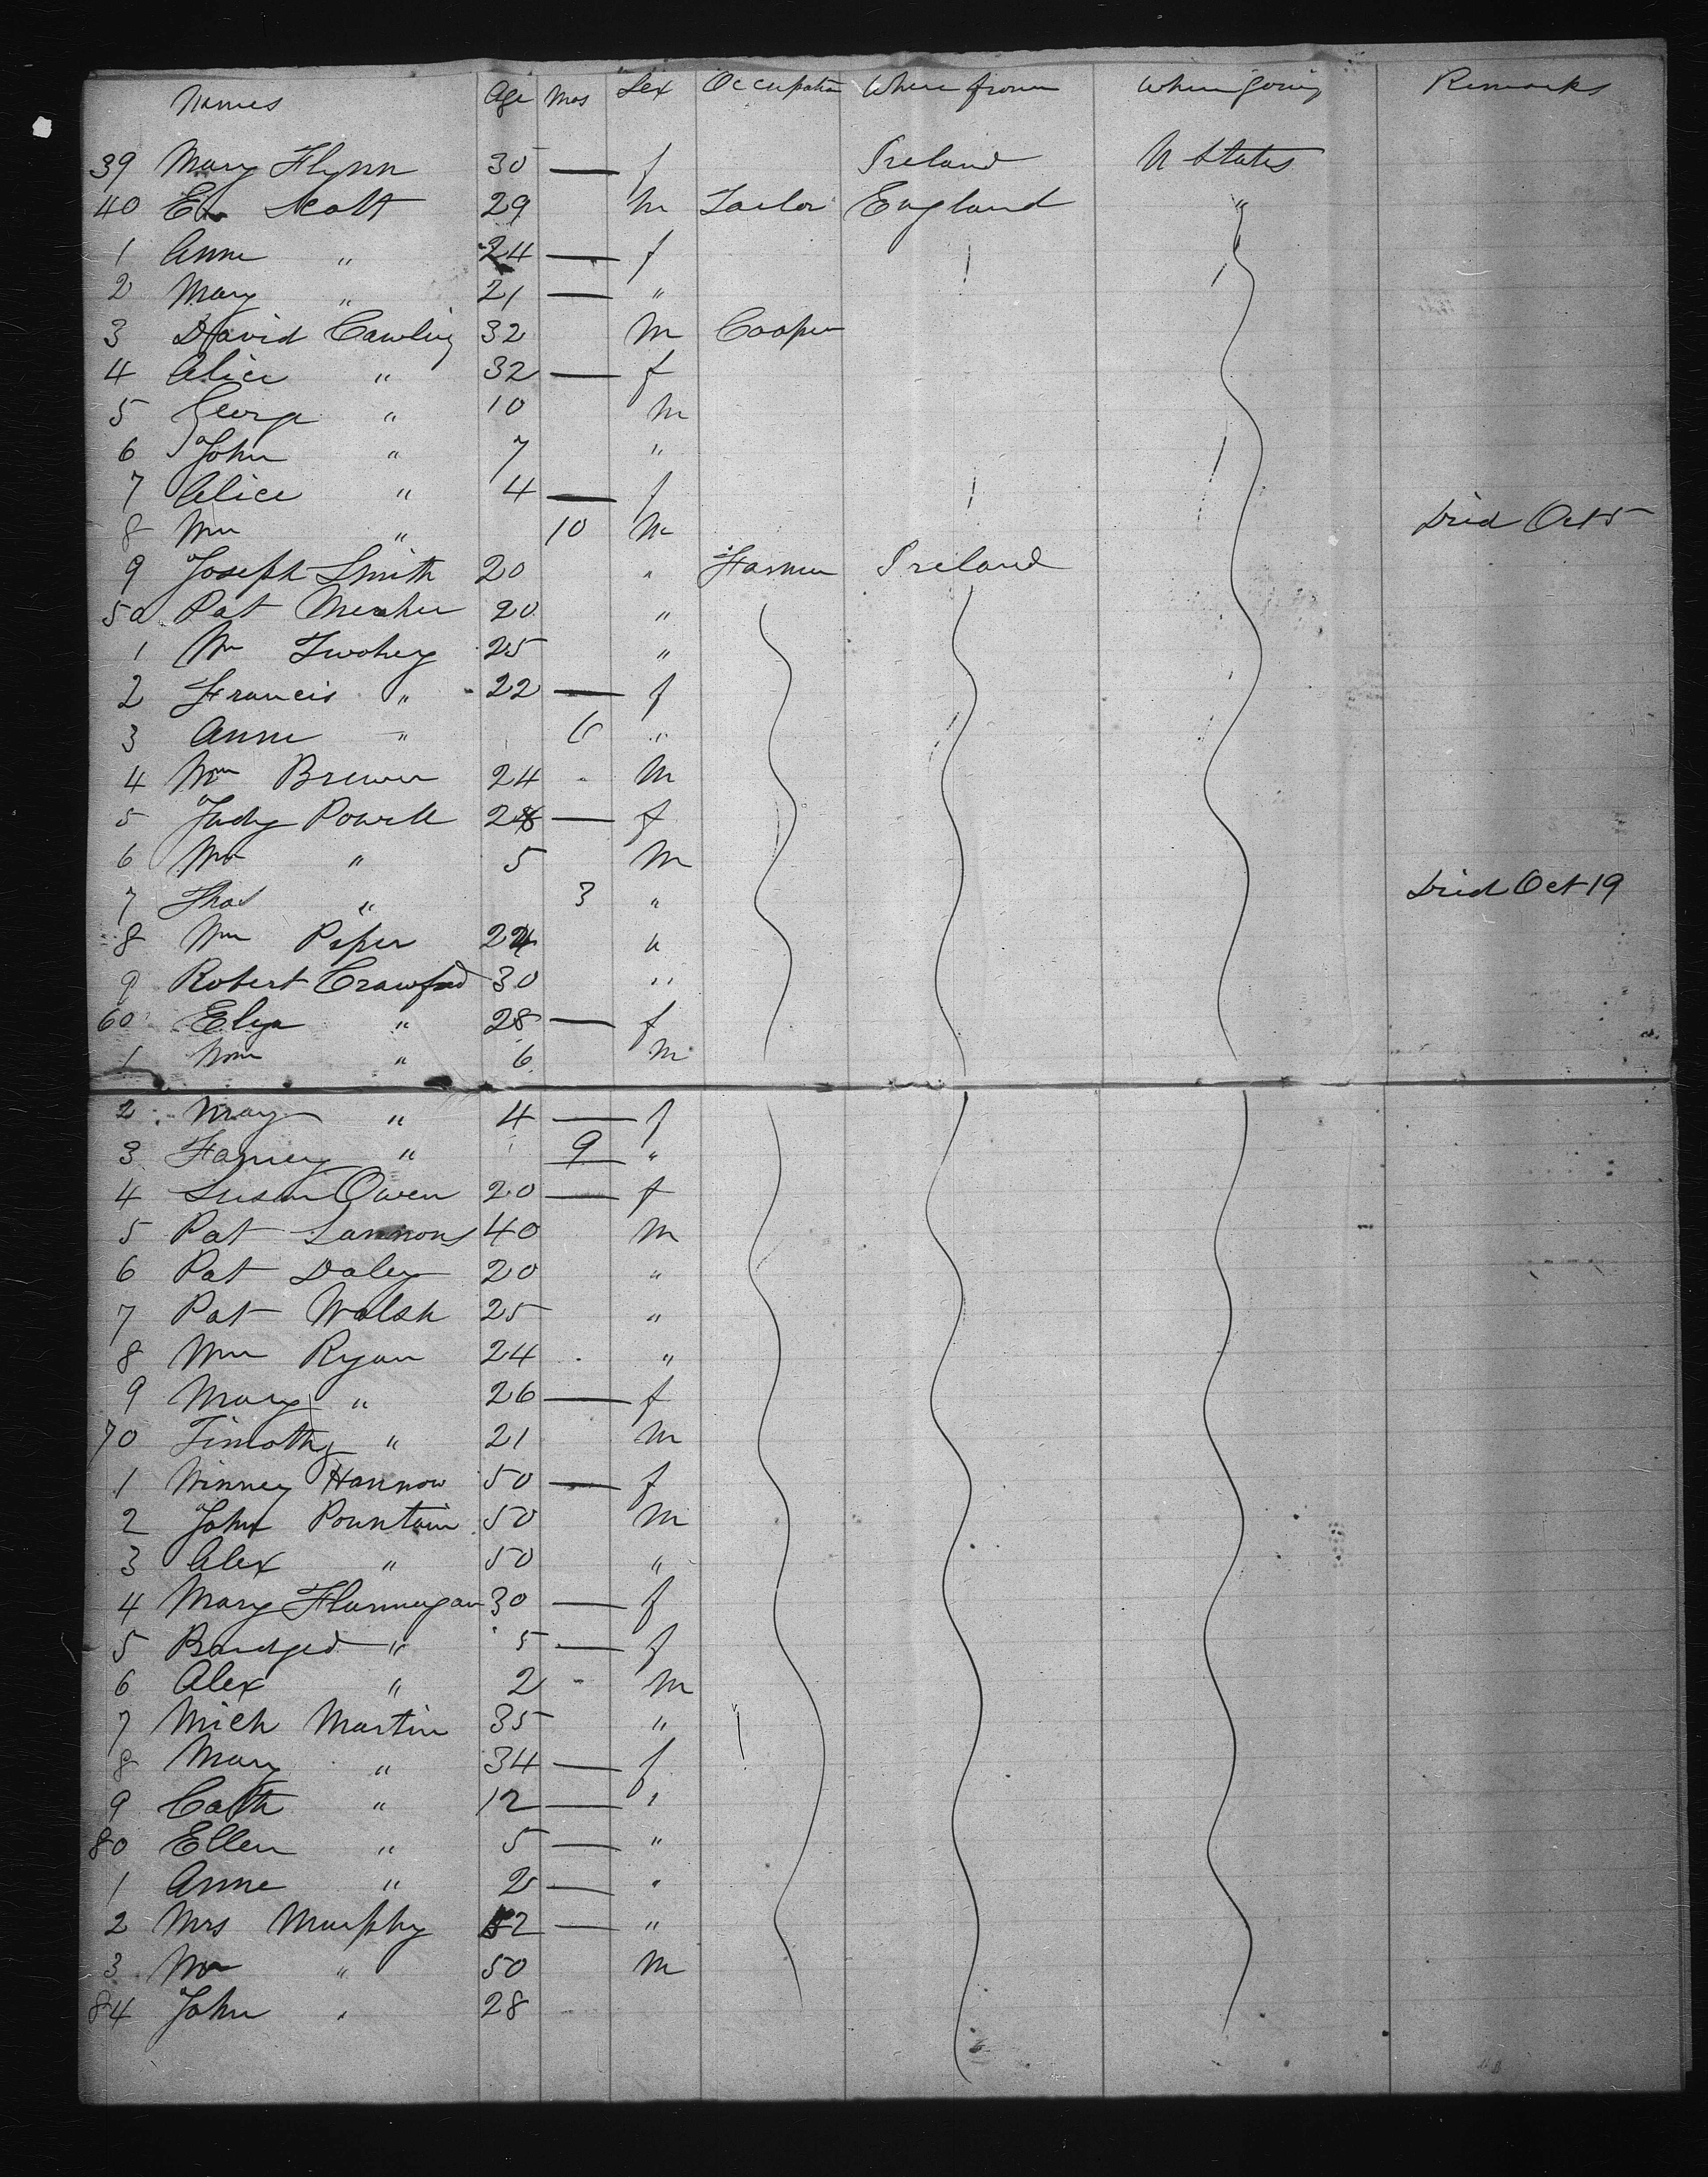 Names Age Mos Sex Occupation Where from Where going Remarks
39 Mary Flynn 30 — f Ireland U States
40 Scott 29 M Tailor England "
1 Anne " 24 — f
2 Mary " 21 — "
3 David Cawling 32 M Cooper
4 Alice " 32 — f
5 George " 10 M
6 John " 7 "
7 Alice " 4 — f
8 Wm " 10 M Died Oct 5
9 Joseph Smith 20 " Farmer Ireland
50 Pat Meaher 20 "
1 Wm Twohey 25 "
2 Francis " 22 — f
3 Anne " "
4 Wm Brewer 24 M
5 Judy Powell — f
6 Wm " 5 M
7 Thos " 3 " Died Oct 19
8 Wm Piper "
9 Robert Crawford 30 "
60 Eliza " 28 — f
1 Wm " 6 M
2 Mary " 4 — f
3 Fanny " 9 "
4 Susan Owen 20 — f
5 Pat Lannons 40 M
6 Pat Daley 20 "
7 Pat Walsh 25 "
8 Wm Ryan 24 "
9 Mary " 26 — f
70 Timothy " 21 M
1 Winney Hannow 50 — f
2 John Pountain 50 M
3 Alex " 50 "
4 Mary Flannegan 30 — f
5 Bridged " 5 — f
6 Alex " 2 M
7 Mich Martin 35 "
8 Mary " 34 — f
9 Cath " 12 — "
80 Ellen " 5 — "
1 Anne " 2 — "
2 Mrs Murphy — "
3 Wm " 50 M
84 John " 28